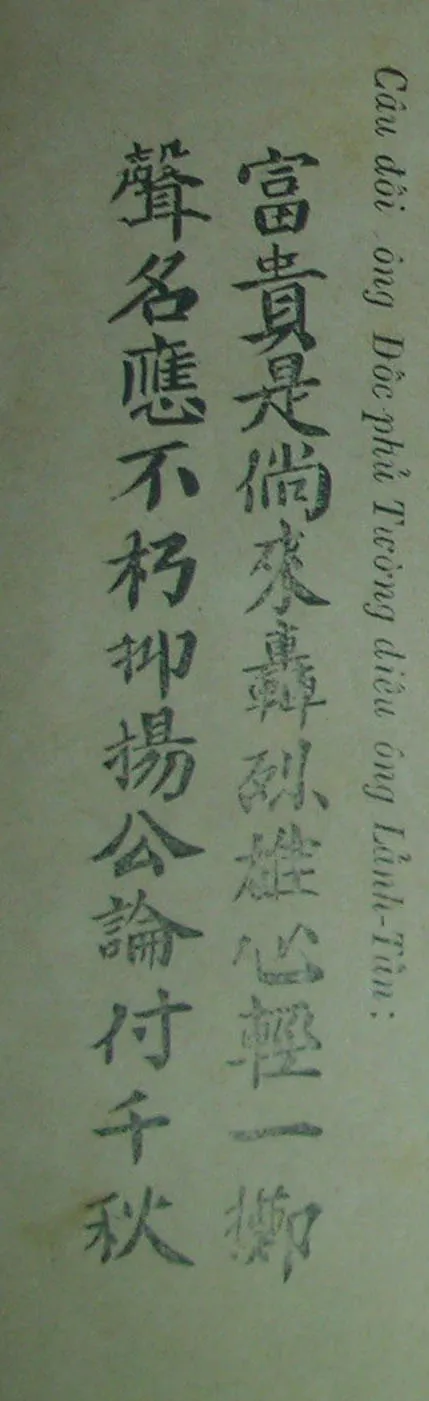 Câu đối ông Đốc-phủ Tường điếu ông Lảnh-Tấn :
富貴是倘來轟烈雄心輕一擲
聲名應不朽抑揚公論付千秋